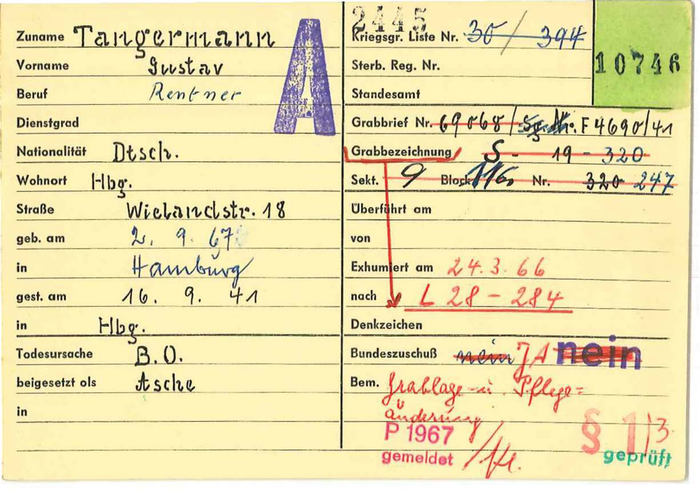 Zuname Tangermann
Vorname Gustav
Beruf Rentner
A
Dienstgrad
Nationalität Dtsch.
Wohnort Hbg.
Straße Wielandstr. 18
geb. am 2. 9. 67
in Hamburg
gest. am 16. 9. 41
in Hbg.
Todesursache B.O.
beigesetzt als Asche
in
2445
Kriegsgr. Liste Nr. 30/394
10746
Sterb. Reg. Nr.
Standesamt
Grabbrief Nr. 69068/ F 4690/41
Grabbezeichnung S - 19 - 320
Sekt. 9 Block 116 Nr. 320 247
Überführt am
von
Exhumiert am 24.3.66
nach L 28 - 284
Denkzeichen
Bundeszuschuß nein JA nein
Bem. Grablage- u. Pflege=
änderung
P 1967
gemeldet
§ 1/3
geprüft